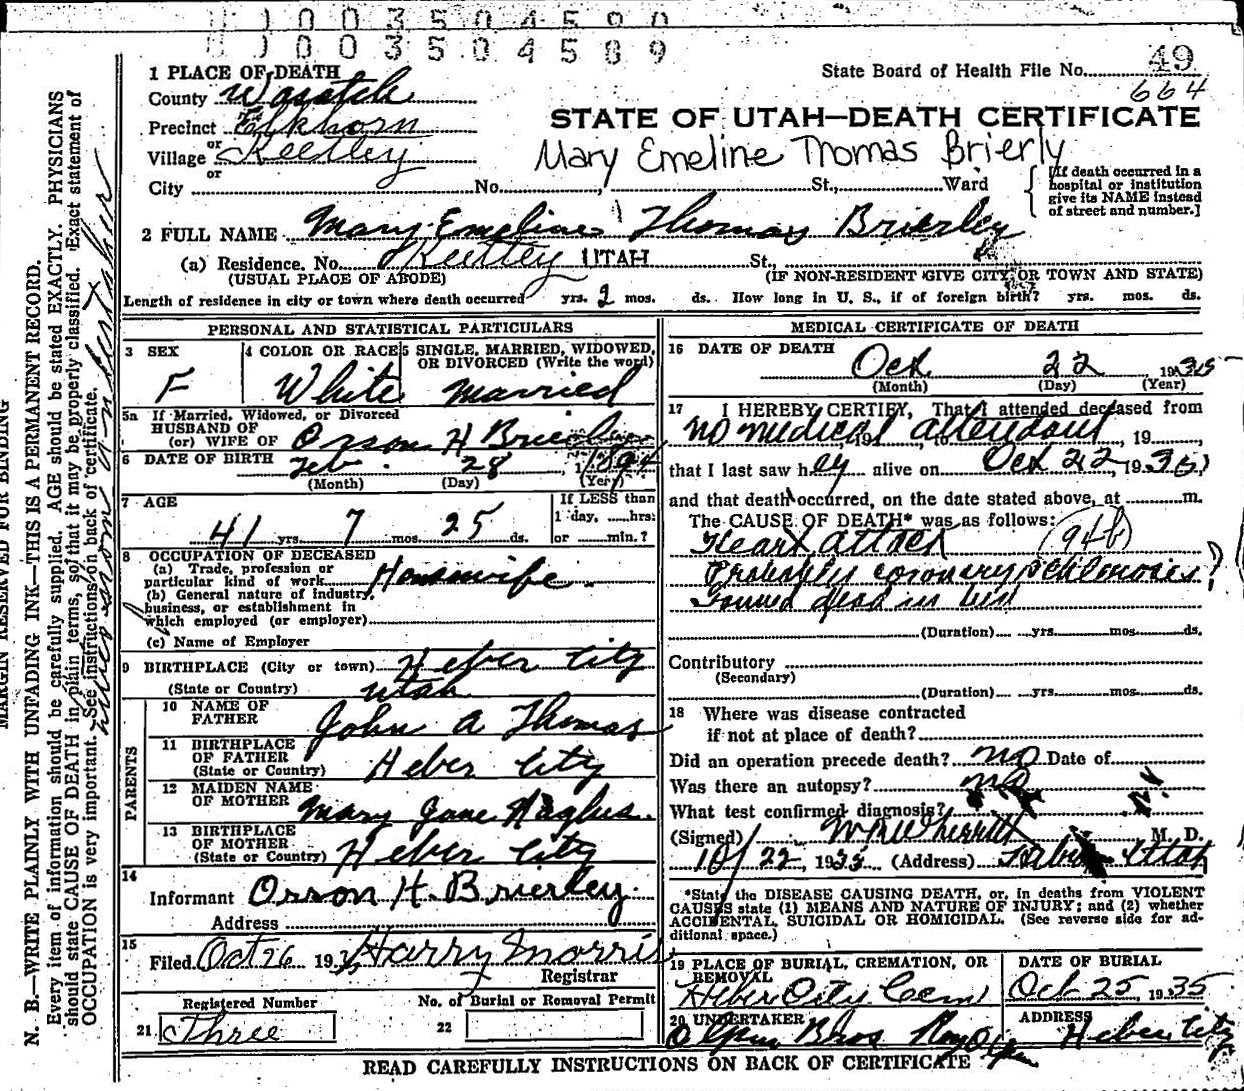 1 0 0 3 5 0 4 5 9 0
1 0 0 3 5 0 4 5 8 9
State Board of Health File No. 49
664
STATE OF UTAH—DEATH CERTIFICATE
Mary Emeline Thomas Brierly
1 PLACE OF DEATH
County Wasatch
Precinct Elkhorn
or
Village Keetley
or
City No. , St., Ward
[If death occurred in a
hospital or institution
give its NAME instead
of street and number.]
2 FULL NAME Mary Emeline Thomas Brierley
(a) Residence. No. Keetley UTAH St.,
(USUAL PLACE OF ABODE) (IF NON-RESIDENT GIVE CITY OR TOWN AND STATE)
Length of residence in city or town where death occurred yrs. 2 mos. ds. How long in U. S., if of foreign birth? yrs. mos. ds.
PERSONAL AND STATISTICAL PARTICULARS
3 SEX
F
4 COLOR OR RACE
White
5 SINGLE, MARRIED, WIDOWED,
OR DIVORCED (Write the word)
Married
5a If Married, Widowed, or Divorced
HUSBAND OF
(or) WIFE OF Orson H Brierley
6 DATE OF BIRTH Feb. 28, 1894
(Month) (Day) (Year)
7 AGE
41 yrs. 7 mos. 25 ds.
If LESS than
1 day, hrs.
or min.?
8 OCCUPATION OF DECEASED
(a) Trade, profession or
particular kind of work Housewife
(b) General nature of industry,
business, or establishment in
which employed (or employer)
(c) Name of Employer
9 BIRTHPLACE (City or town) Heber City
(State or Country) Utah
PARENTS
10 NAME OF
FATHER John A Thomas
11 BIRTHPLACE
OF FATHER
(State or Country) Heber City
12 MAIDEN NAME
OF MOTHER Mary Jane
13 BIRTHPLACE
OF MOTHER
(State or Country) Heber City
14
Informant Orson H. Brierley
Address
15
Filed Oct 26 193 Harry Morris
Registrar
Registered Number
21 Three
No. of Burial or Removal Permit
22
MEDICAL CERTIFICATE OF DEATH
16 DATE OF DEATH
Oct 22, 1935
(Month) (Day) (Year)
17 I HEREBY CERTIFY, That I attended deceased from
no medical attendant, 19
that I last saw her alive on Oct 22, 1935,
and that death occurred, on the date stated above, at m.
The CAUSE OF DEATH* was as follows:
Heart attack (94b)
Probably coronary sclerosis?
Found dead in bed
(Duration) yrs. mos. ds.
Contributory
(Secondary)
(Duration) yrs. mos. ds.
18 Where was disease contracted
if not at place of death?
Did an operation precede death? no Date of
Was there an autopsy? no
What test confirmed diagnosis?
(Signed) W R Wherritt M. D.
10/22, 1935 (Address) Utah
*State the DISEASE CAUSING DEATH, or, in deaths from VIOLENT
CAUSES state (1) MEANS AND NATURE OF INJURY; and (2) whether
ACCIDENTAL, SUICIDAL OR HOMICIDAL. (See reverse side for ad-
ditional space.)
19 PLACE OF BURIAL, CREMATION, OR
REMOVAL
Heber City Cem
DATE OF BURIAL
Oct 25, 1935
20 UNDERTAKER
Olpin Bros Roy Olpin
ADDRESS
Heber City
READ CAREFULLY INSTRUCTIONS ON BACK OF CERTIFICATE
MARGIN RESERVED FOR BINDING
N. B.—WRITE PLAINLY WITH UNFADING INK—THIS IS A PERMANENT RECORD.
Every item of information should be carefully supplied. AGE should be stated EXACTLY. PHYSICIANS
should state CAUSE OF DEATH in plain terms, so that it may be properly classified. Exact statement of
OCCUPATION is very important. See instructions on back of certificate.